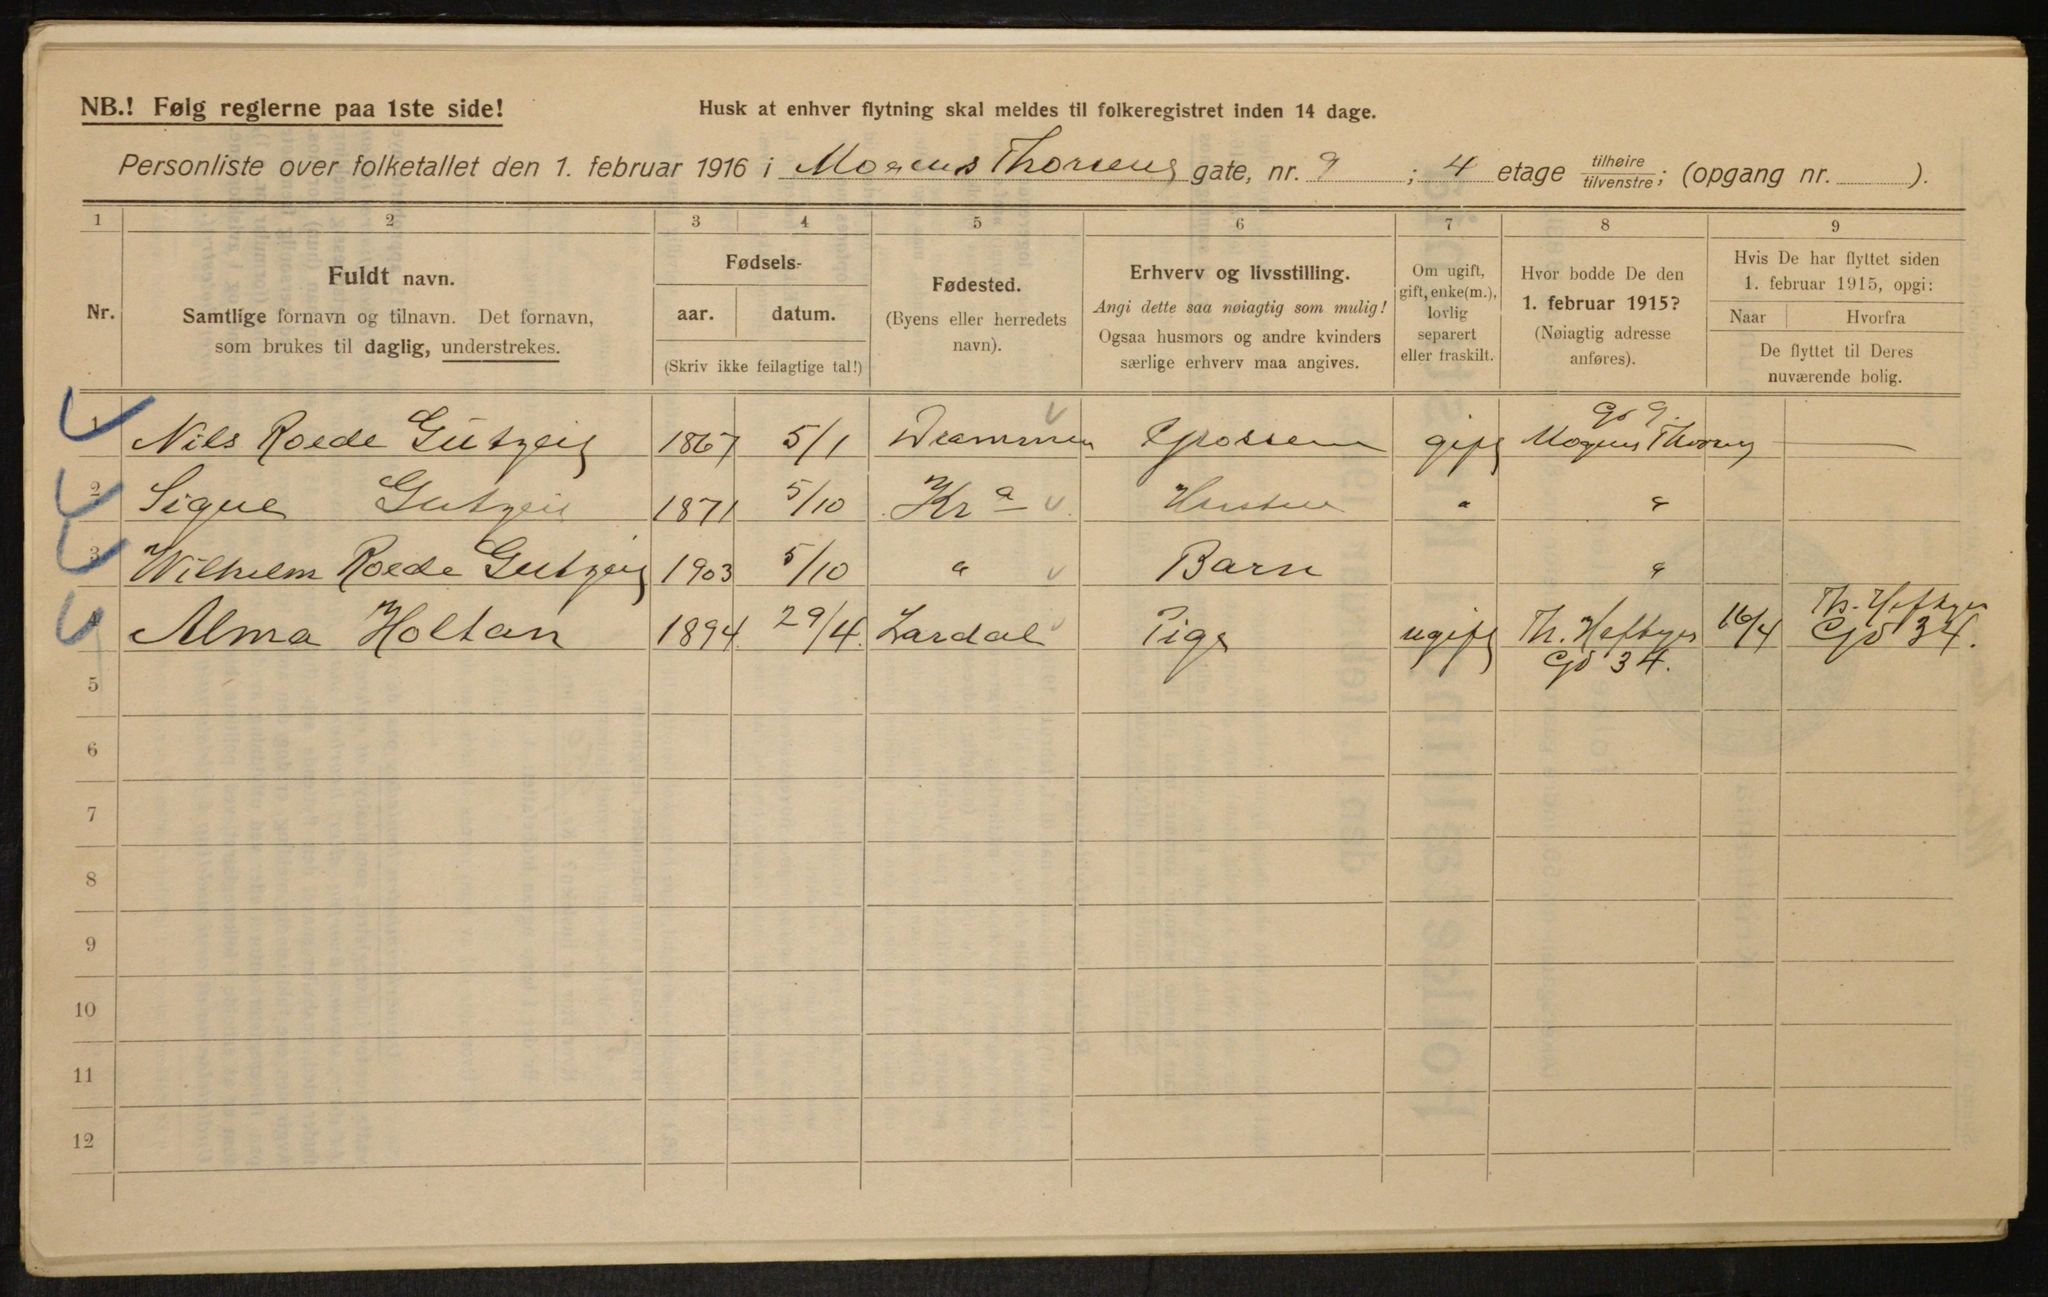 NB.! Følg reglerne paa 1ste side!
Husk at enhver flytning skal meldes til folkeregistret inden 14 dage.
Personliste over folketallet den 1. februar 1916 i Mogens Thorsens gate, nr. 9 ; 4 etage tilhøire/tilvenstre; (opgang nr. ).
1 2 3 4 5 6 7 8 9
Nr.
Fuldt navn.
Samtlige fornavn og tilnavn. Det fornavn,
som brukes til daglig, understrekes.
Fødsels-
aar. datum.
(Skriv ikke feilagtige tal!)
Fødested.
(Byens eller herredets
navn).
Erhverv og livsstilling.
Angi dette saa nøiagtig som mulig!
Ogsaa husmors og andre kvinders
særlige erhverv maa angives.
Om ugift,
gift, enke(m.),
lovlig
separert
eller fraskilt.
Hvor bodde De den
1. februar 1915?
(Nøiagtig adresse
anføres).
Hvis De har flyttet siden
1. februar 1915, opgi:
Naar Hvorfra
De flyttet til Deres
nuværende bolig.
1 Nils Roede Gutzeit 1867 5/1 Drammen Grosserer gift Mogens Thorsens Gd 9.
2 Signe Gutzeit 1871 5/10 Kra Hustru " "
3 Wilhelm Roede Gutzeit 1903 5/10 " Barn "
4 Alma Holtan 1894 29/4 Lardal Pige ugift Th. Heftyes Gd 34. 16/4 Th. Heftyes Gd 34.
5
6
7
8
9
10
11
12